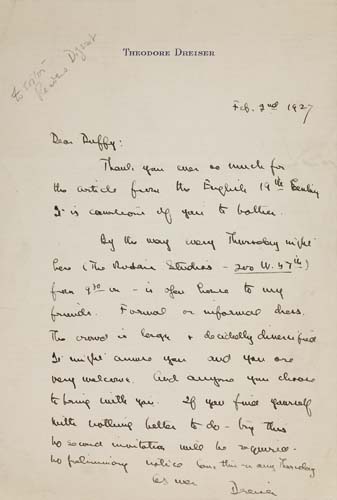 THEODORE DREISER
Feb. 2nd 1927
Dear Duffy:
Thank you ever so much for
the article from the English 19th Century
It is courteous of you to bother.
By the way every Thursday night
here (The Rodin Studios - 200 W. 57th)
from 9:30 on - is open house to my
friends. Formal or informal dress.
The crowd is large + decidedly diversified
It might amuse you and you are
very welcome. And anyone you choose
to bring with you. If you find yourself
with nothing better to do - try this
No second invitation will be required -
No preliminary notice. Come this or any Thursday
Dreiser